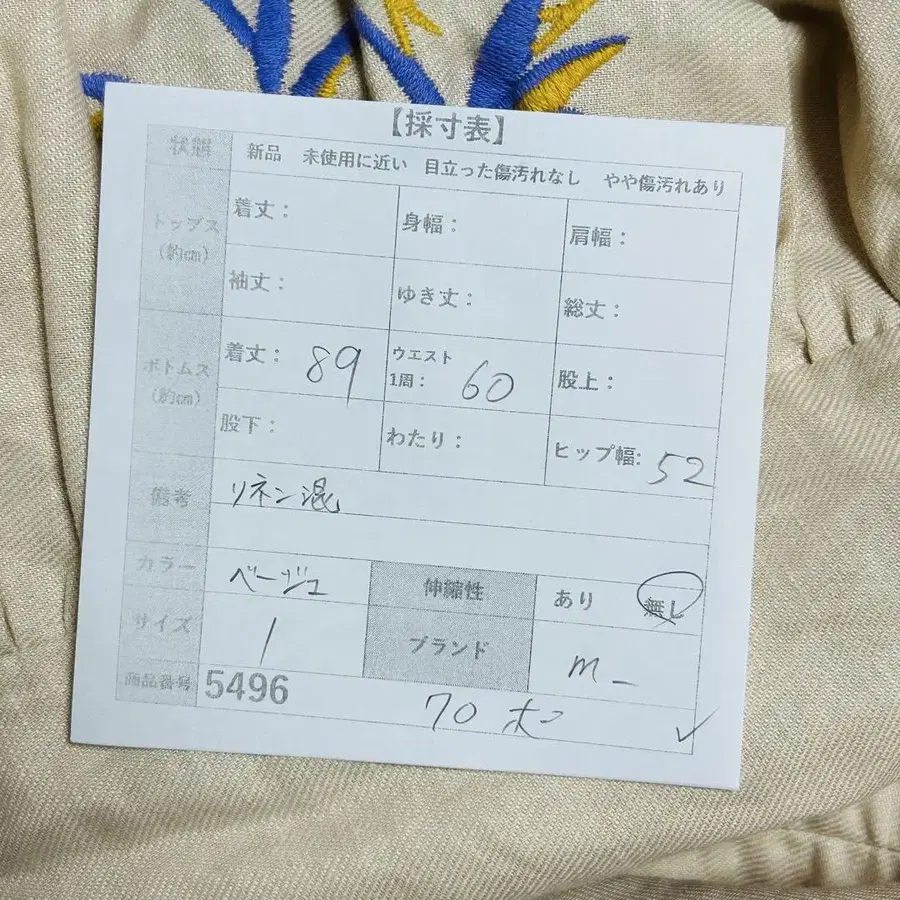 【採寸表】
状態 新品 未使用に近い 目立った傷汚れなし やや傷汚れあり
トップス(約cm) 着丈： 身幅： 肩幅：
袖丈： ゆき丈： 総丈：
ボトムス(約cm) 着丈：89 ウエスト1周：60 股上：
股下： わたり： ヒップ幅:52
備考 リネン混
カラー ベージュ 伸縮性 あり 無し
サイズ 1 ブランド m_
商品番号 5496 70